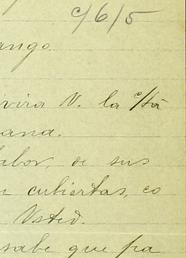 c/6/5
ango.
V. la c/ta
ana.
labor, de sus
cubiertas, es
Usted.
sabe que pa